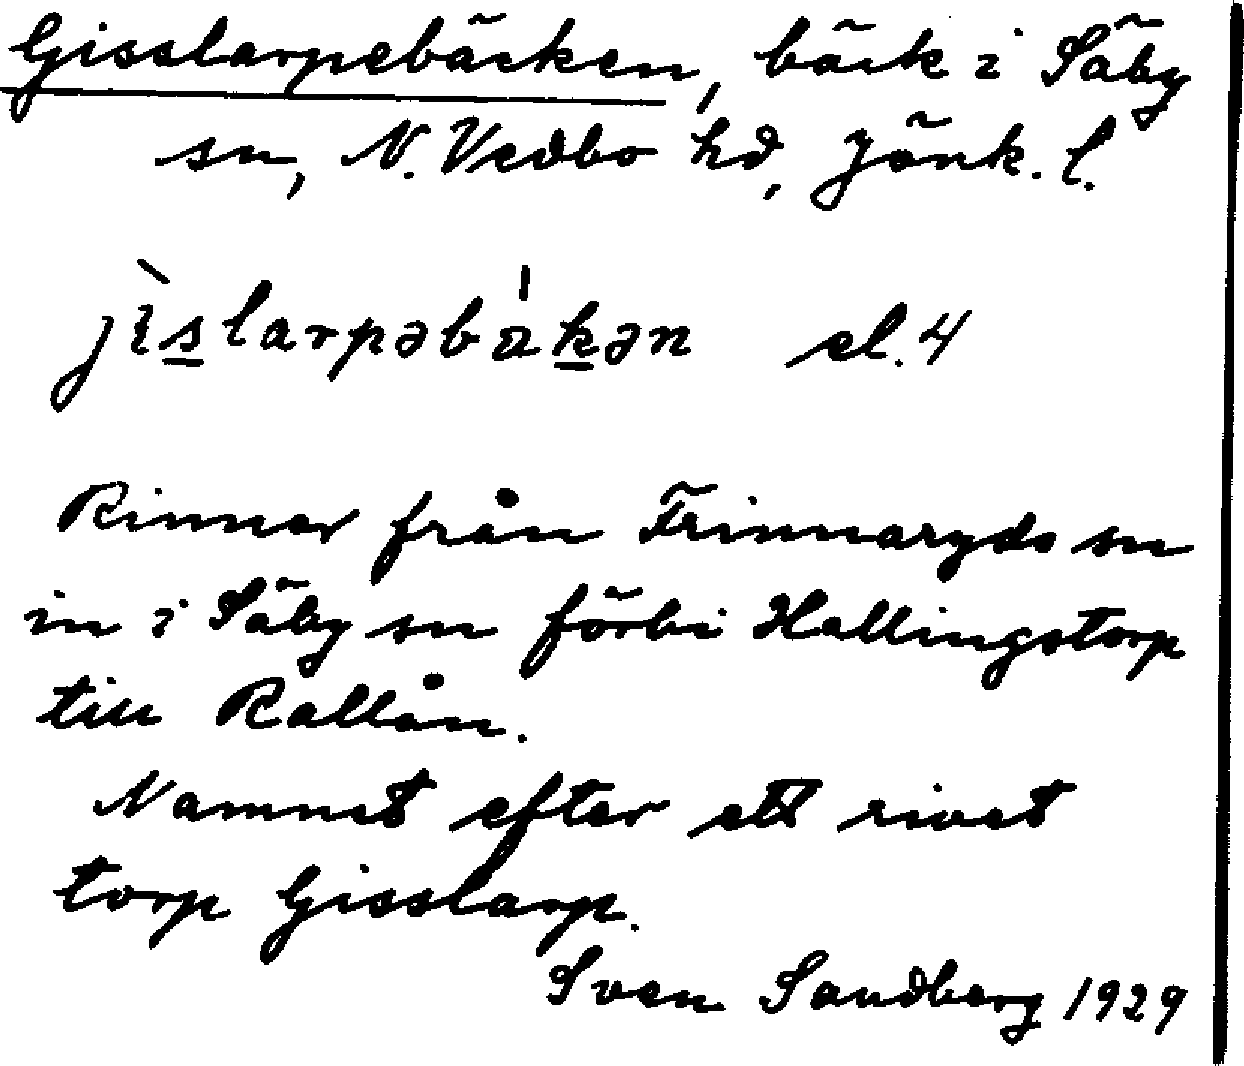 Gisslarpebäcken, bäck i Säby
sn, N. Vedbo hd, Jönk. l.
jìslarpəbákən el. 4
Rinner från Frinnaryds sn
in i Säby sn förbi Hallingstorp
till Rallån.
Namnet efter ett rivet
torp Gisslarp.
Sven Sandberg 1929